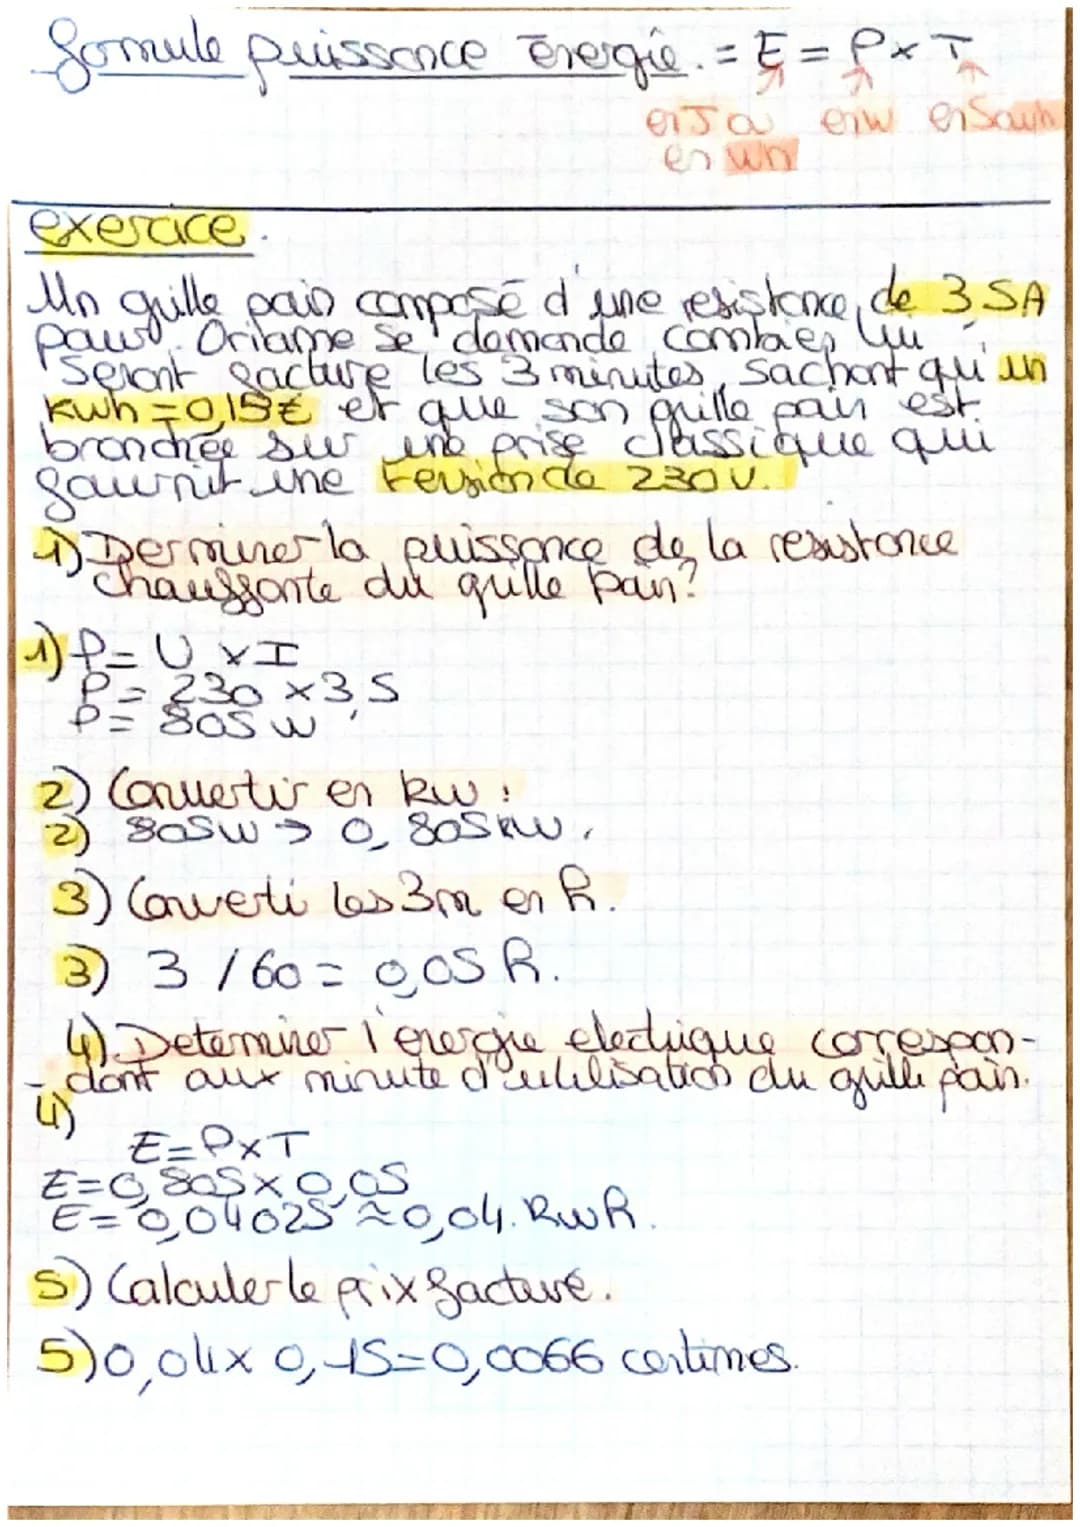 formule puissance énergie. = E = P x T
en J ou en W en S ou h
en Wh
exercice.
Un grille pain composé d'une resistance de 3,5A
pour. Oriame se demande combien lui
seront facture les 3 minutes, sachant qu'un
Kwh = 0,15€ et que son grille pain est
branchée sur une prise classique qui
fournit une tension de 230 V.
1) Derminer la puissance de la resistance
chauffante du grille pain?
1) P = U x I
P = 230 x 3,5
P = 805 W
2) Convertir en kw :
2) 805W → 0,805 KW.
3) Converti les 3m en h.
3) 3 / 60 = 0,05 h.
4) Determiner l'énergie electrique correspon-
- dant aux minute d'utilisation du grille pain.
4)
E = P x T
E = 0,805 x 0,05
E = 0,04025 ≈ 0,04. KwR.
5) Calculer le prix facturé.
5) 0,04 x 0,15 = 0,0066 centimes.